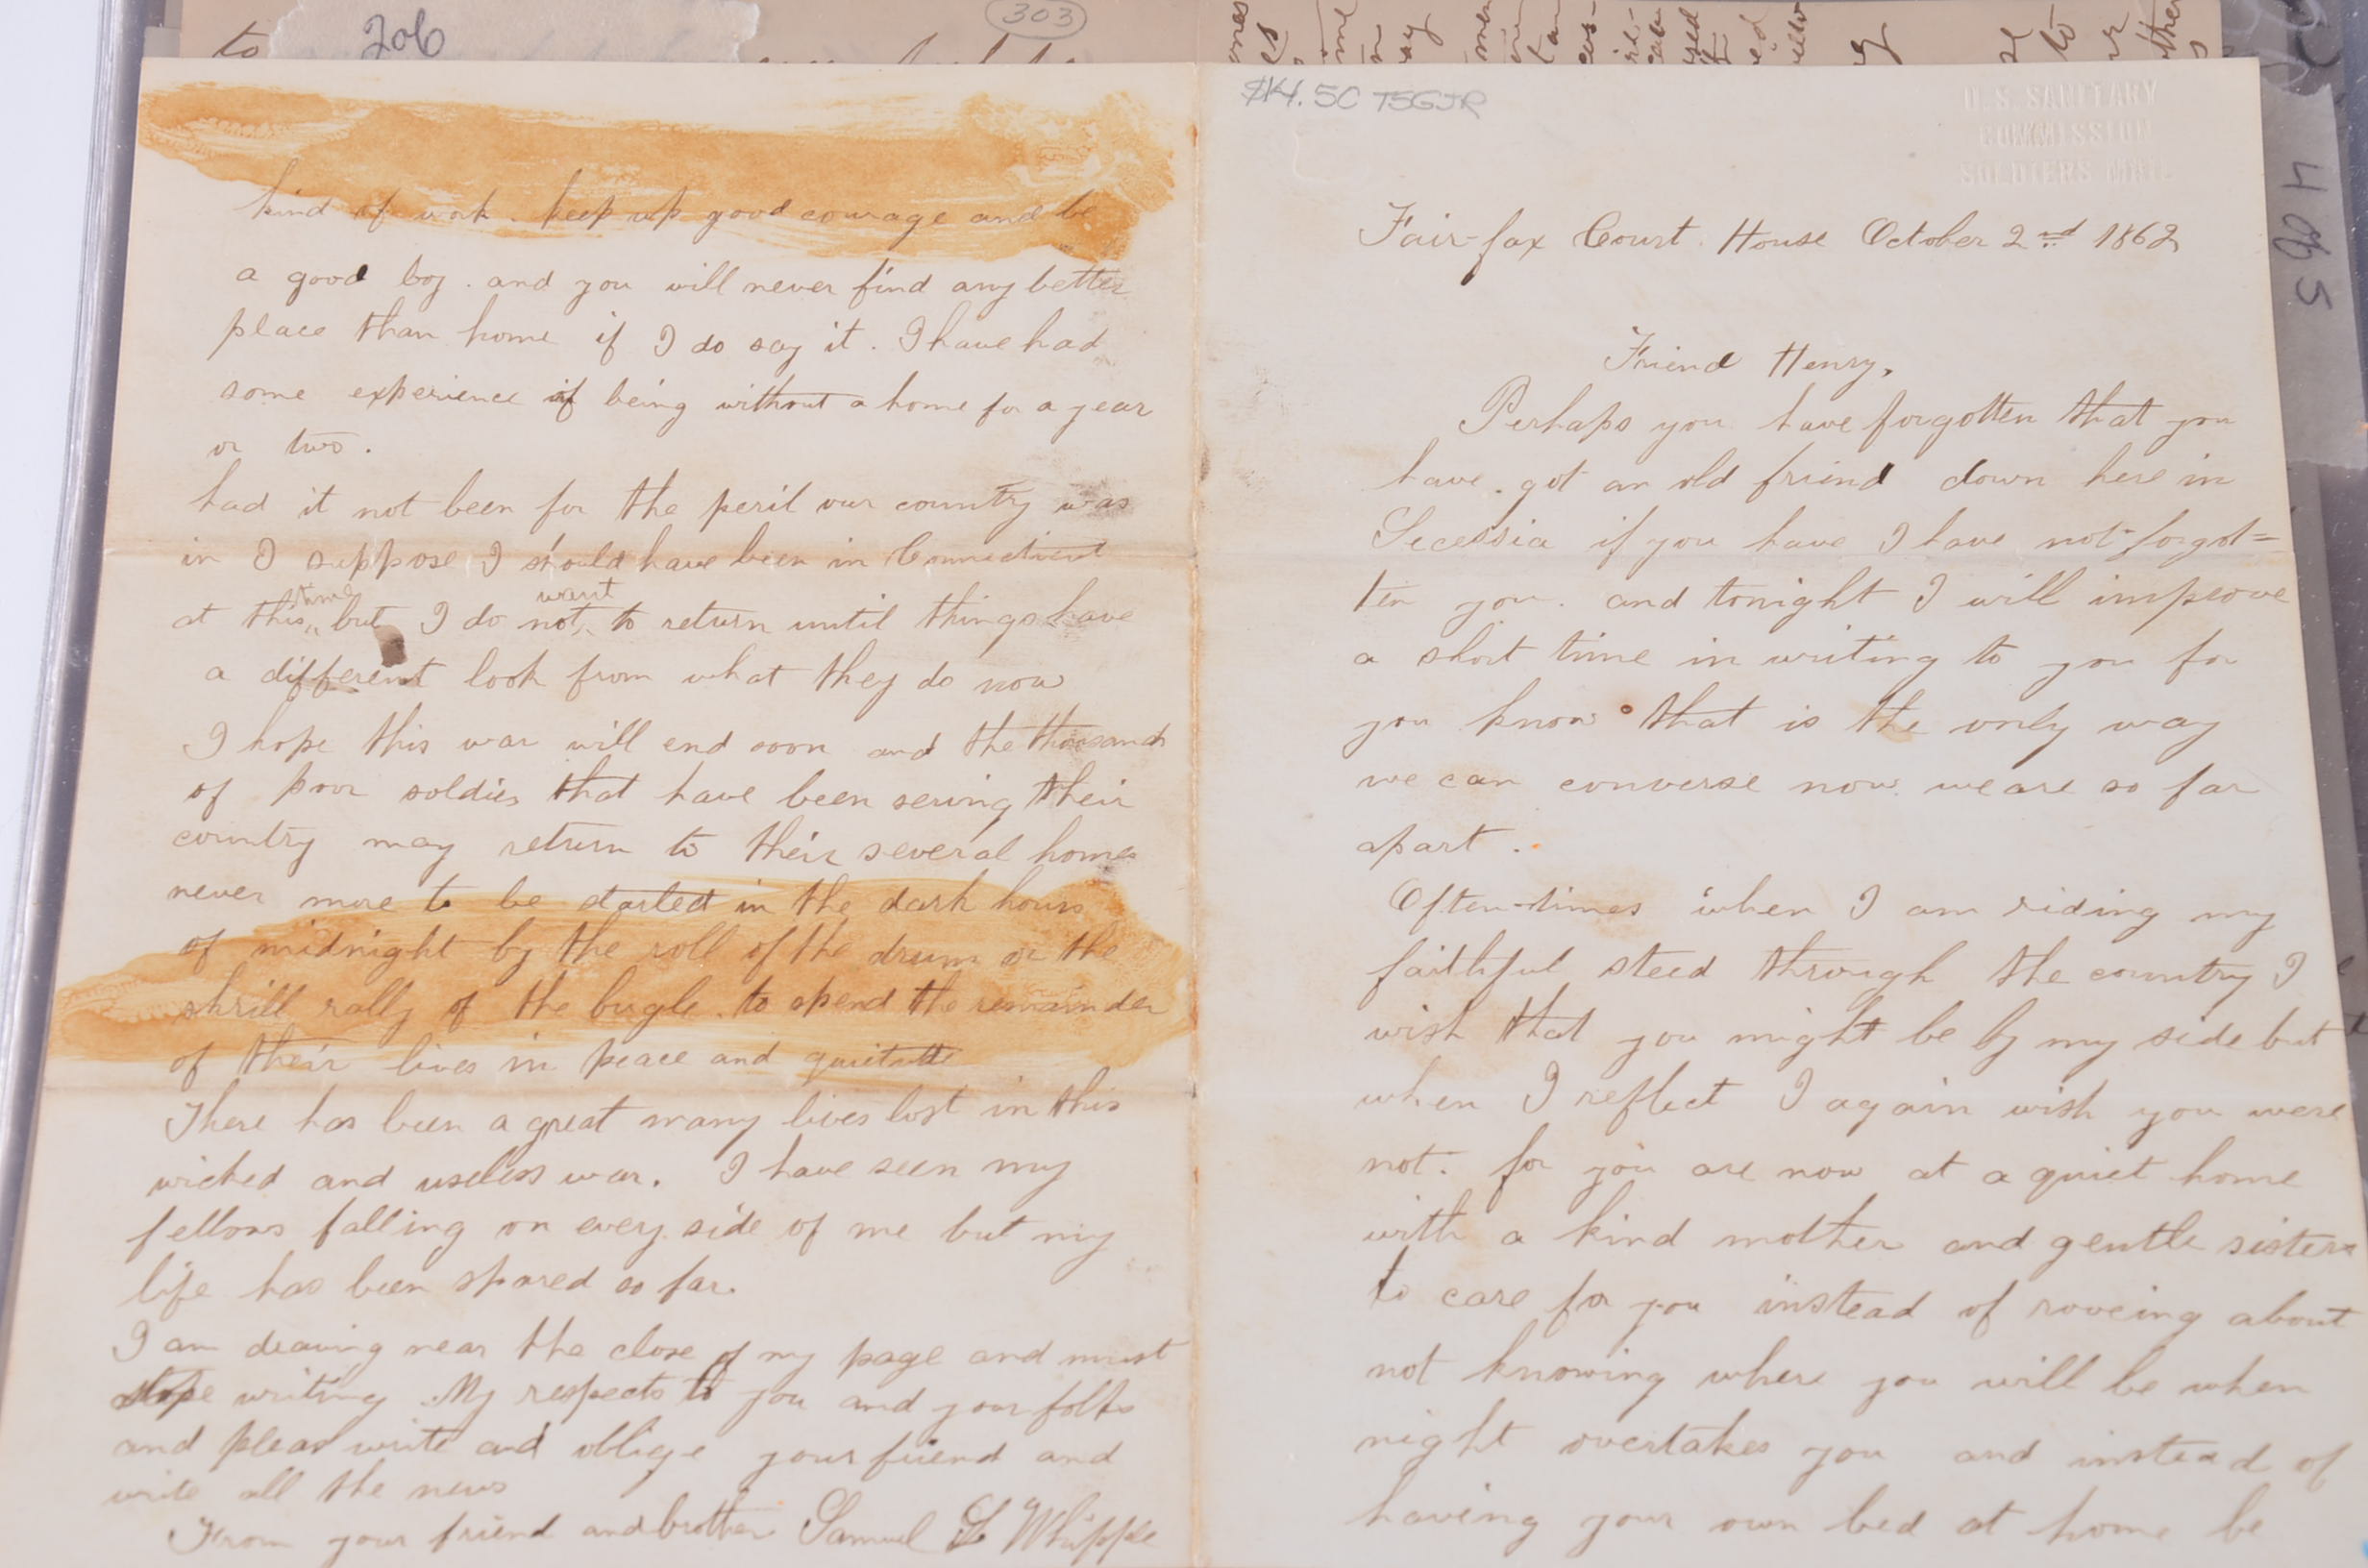 206
303
to
$14.50 TSGJR
U.S. SANITARY
COMMISSION
SOLDIERS MAIL
4065
kind of work. keep up good courage and be
a good boy. and you will never find any better
place than home if I do say it. I have had
some experience of being without a home for a year
or two.
had it not been for the peril our country was
in I suppose I should have been in Connecticut
at this time but I do not want to return until things have
a different look from what they do now
I hope this war will end soon and the thousands
of poor soldies that have been sering their
country may return to their several homes
never more to be started in the dark hours
of midnight by the roll of the drum or the
shrill rally of the bugle. to spend the remainder
of their lives in peace and quietutte
There has been a great many lives lost in this
wicked and useless war. I have seen my
fellows falling on every side of me but my
life has been spared so far.
I am drawing near the close of my page and must
stope writing. My respects to you and your folks
and pleas write and oblige your friend and
write all the news
From your friend and brother Samuel L Whipple
Fair-fax Court House October 2nd 1862
Friend Henry,
Perhaps you have forgotten that you
have got an old friend down here in
Secessia if you have I have not forgot=
ten you. and tonight I will improve
a short time in writing to you for
you know that is the only way
we can converse now we are so far
apart.
Often-times when I am riding my
faithful steed through the country I
wish that you might be by my side but
when I reflect I again wish you were
not. for you are now at a quiet home
with a kind mother and gentle sisters
to care for you instead of roveing about
not knowing where you will be when
night overtakes you and instead of
having your own bed at home be